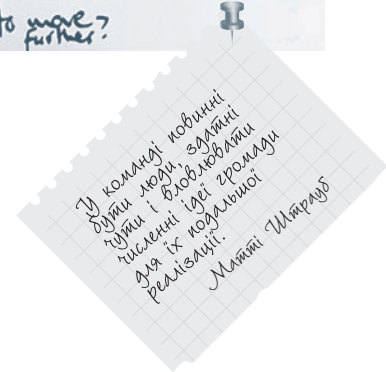 to move?
further?
У команді повинні
бути люди, здатні
чути і вловлювати
численні ідеї громади
для їх подальшої
реалізації.
Матті Штрауб